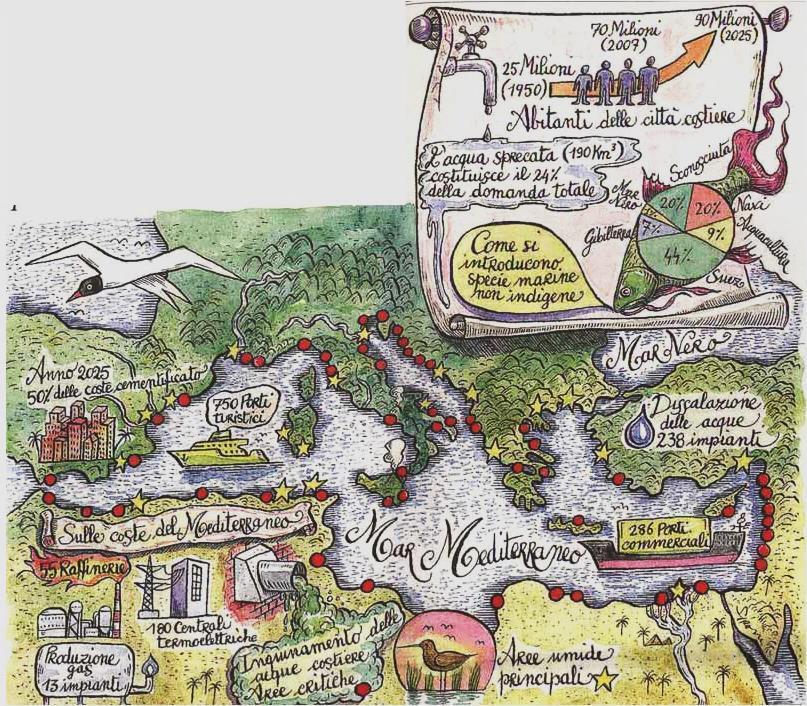 90 Milioni
(2025)
70 Milioni
(2007)
25 Milioni
(1950)
Abitanti delle città costiere
L'acqua sprecata (190 Km³)
costituisce il 24%
della domanda totale
Sconosciuta
Mar
Nero
20%
20%
Navi
7%
9%
Acquacultura
Gibilterra
44%
Suez
Come si
introducono
specie marine
non indigene
Mar Nero
Anno 2025
50% delle coste cementificato
750 Porti
turistici
Dissalazione
delle acque
238 impianti
Sulle coste del Mediterraneo
Mar Mediterraneo
286 Porti
commerciali
55 Raffinerie
180 Centrali
termoelettriche
Produzione
gas
13 impianti
Inquinamento delle
acque costiere
Aree critiche
Aree umide
principali